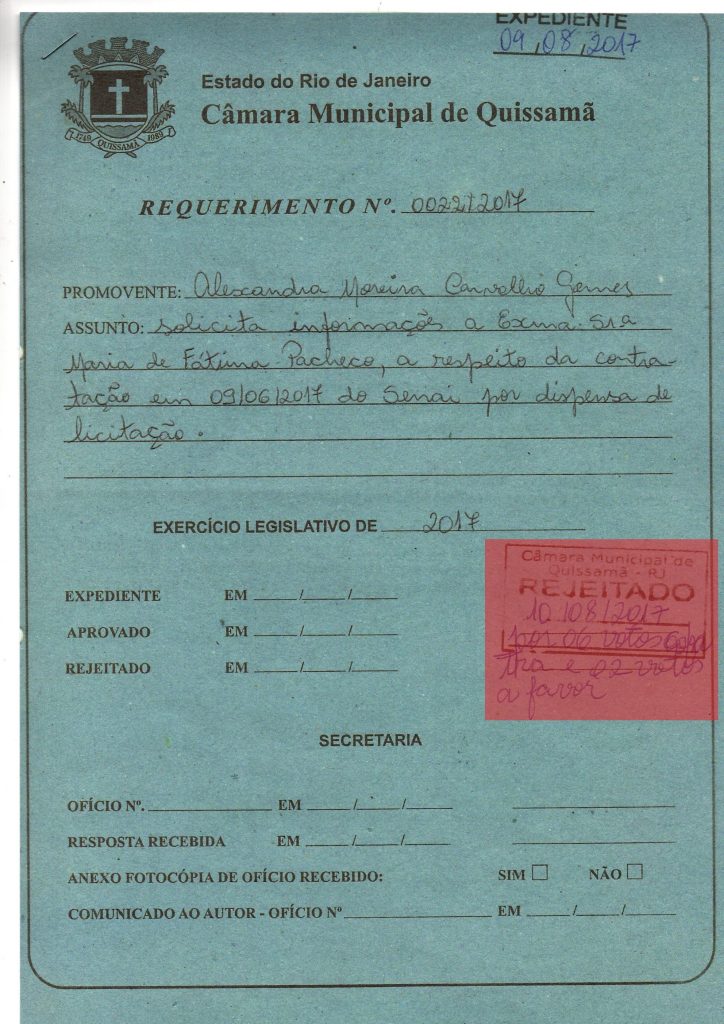 EXPEDIENTE
09/08/2017
1749 QUISSAMÃ 1989
Estado do Rio de Janeiro
Câmara Municipal de Quissamã
REQUERIMENTO Nº. 0022/2017
PROMOVENTE: Alexandra Moreira Carvalho Gomes
ASSUNTO: solicita informações a Exma. Srª
Maria de Fátima Pacheco, a respeito da contra-
tação em 09/06/2017 do Senai por dispensa de
licitação.
EXERCÍCIO LEGISLATIVO DE 2017
Câmara Municipal de
Quissamã - RJ
REJEITADO
10/08/2017
por 06 votos con
tra e 02 votos
a favor
EXPEDIENTE EM ___/___/___
APROVADO EM ___/___/___
REJEITADO EM ___/___/___
SECRETARIA
OFÍCIO Nº. ___ EM ___/___/___
RESPOSTA RECEBIDA EM ___/___/___
ANEXO FOTOCÓPIA DE OFÍCIO RECEBIDO: SIM □ NÃO □
COMUNICADO AO AUTOR - OFÍCIO Nº ___ EM ___/___/___